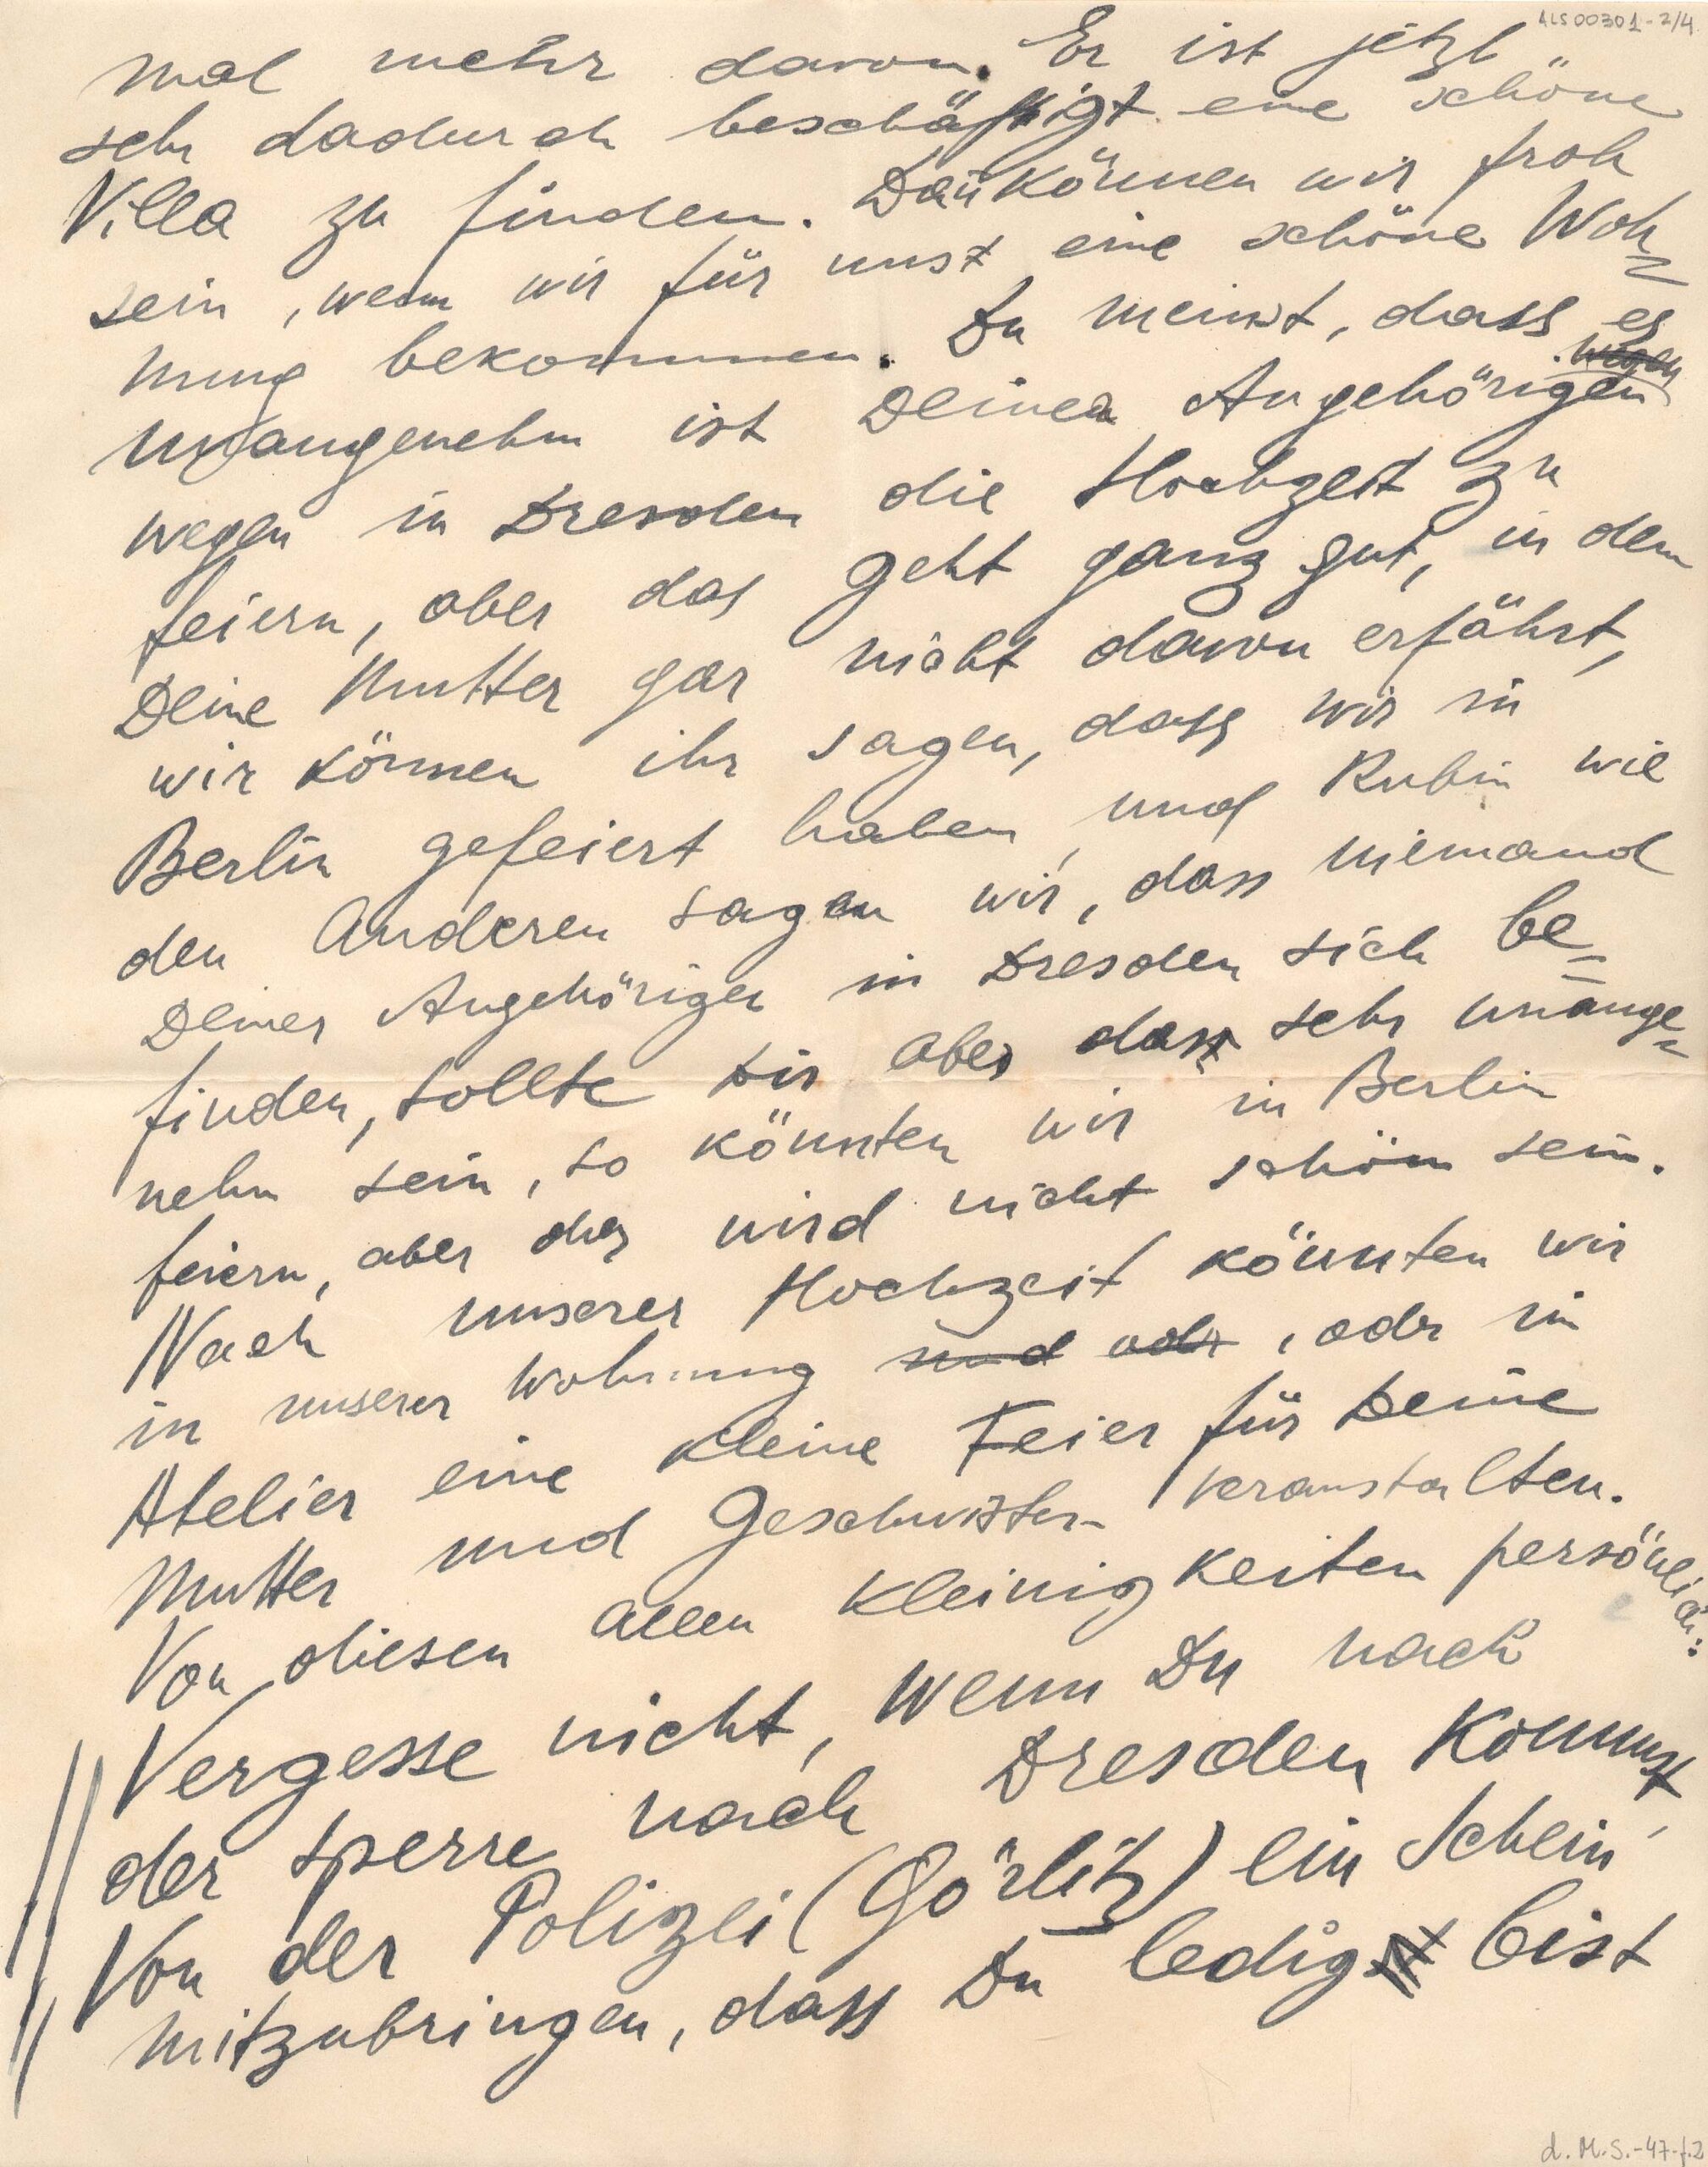 ALS00301-2/4
mal mehr davon. Er ist jetzt
sehr dadurch beschäftigt eine schöne
Villa zu finden. Dan̄ können wir froh
sein, wenn wir für unst eine schöne Woh=
nung bekommen. Du meinst, dass es
wegen
unangenehm ist Deiner Angehörigen
wegen in Dresden die Hochzeit zu
feiern, aber das geht ganz gut, in dem
Deine Mutter gar nicht davon erfährt,
wir können ihr sagen, dass wir in
Berlin gefeiert haben, und Rubin wie
den Anderen sagen wir, dass niemand
Deiner Angehöriger in Dresden sich be=
finden, sollte Dir aber dass sehr unange=
nehm sein, so könnten wir in Berlin
feiern, aber das wird nicht schön sein.
Nach unserer Hochzeit könnten wir
in unserer Wohnung und oder, oder in
Atelier eine kleine Feier für Deine
Mutter und Geschwister veranstalten.
Von diesen allen Kleinigkeiten persönlich:
Vergesse nicht, wenn Du nach
der Sperre nach Dresden kommst,
Von der Polizei (Görlitz) ein Schein
mitzubringen, dass Du ledig bist
d. M. S.-47-f.2